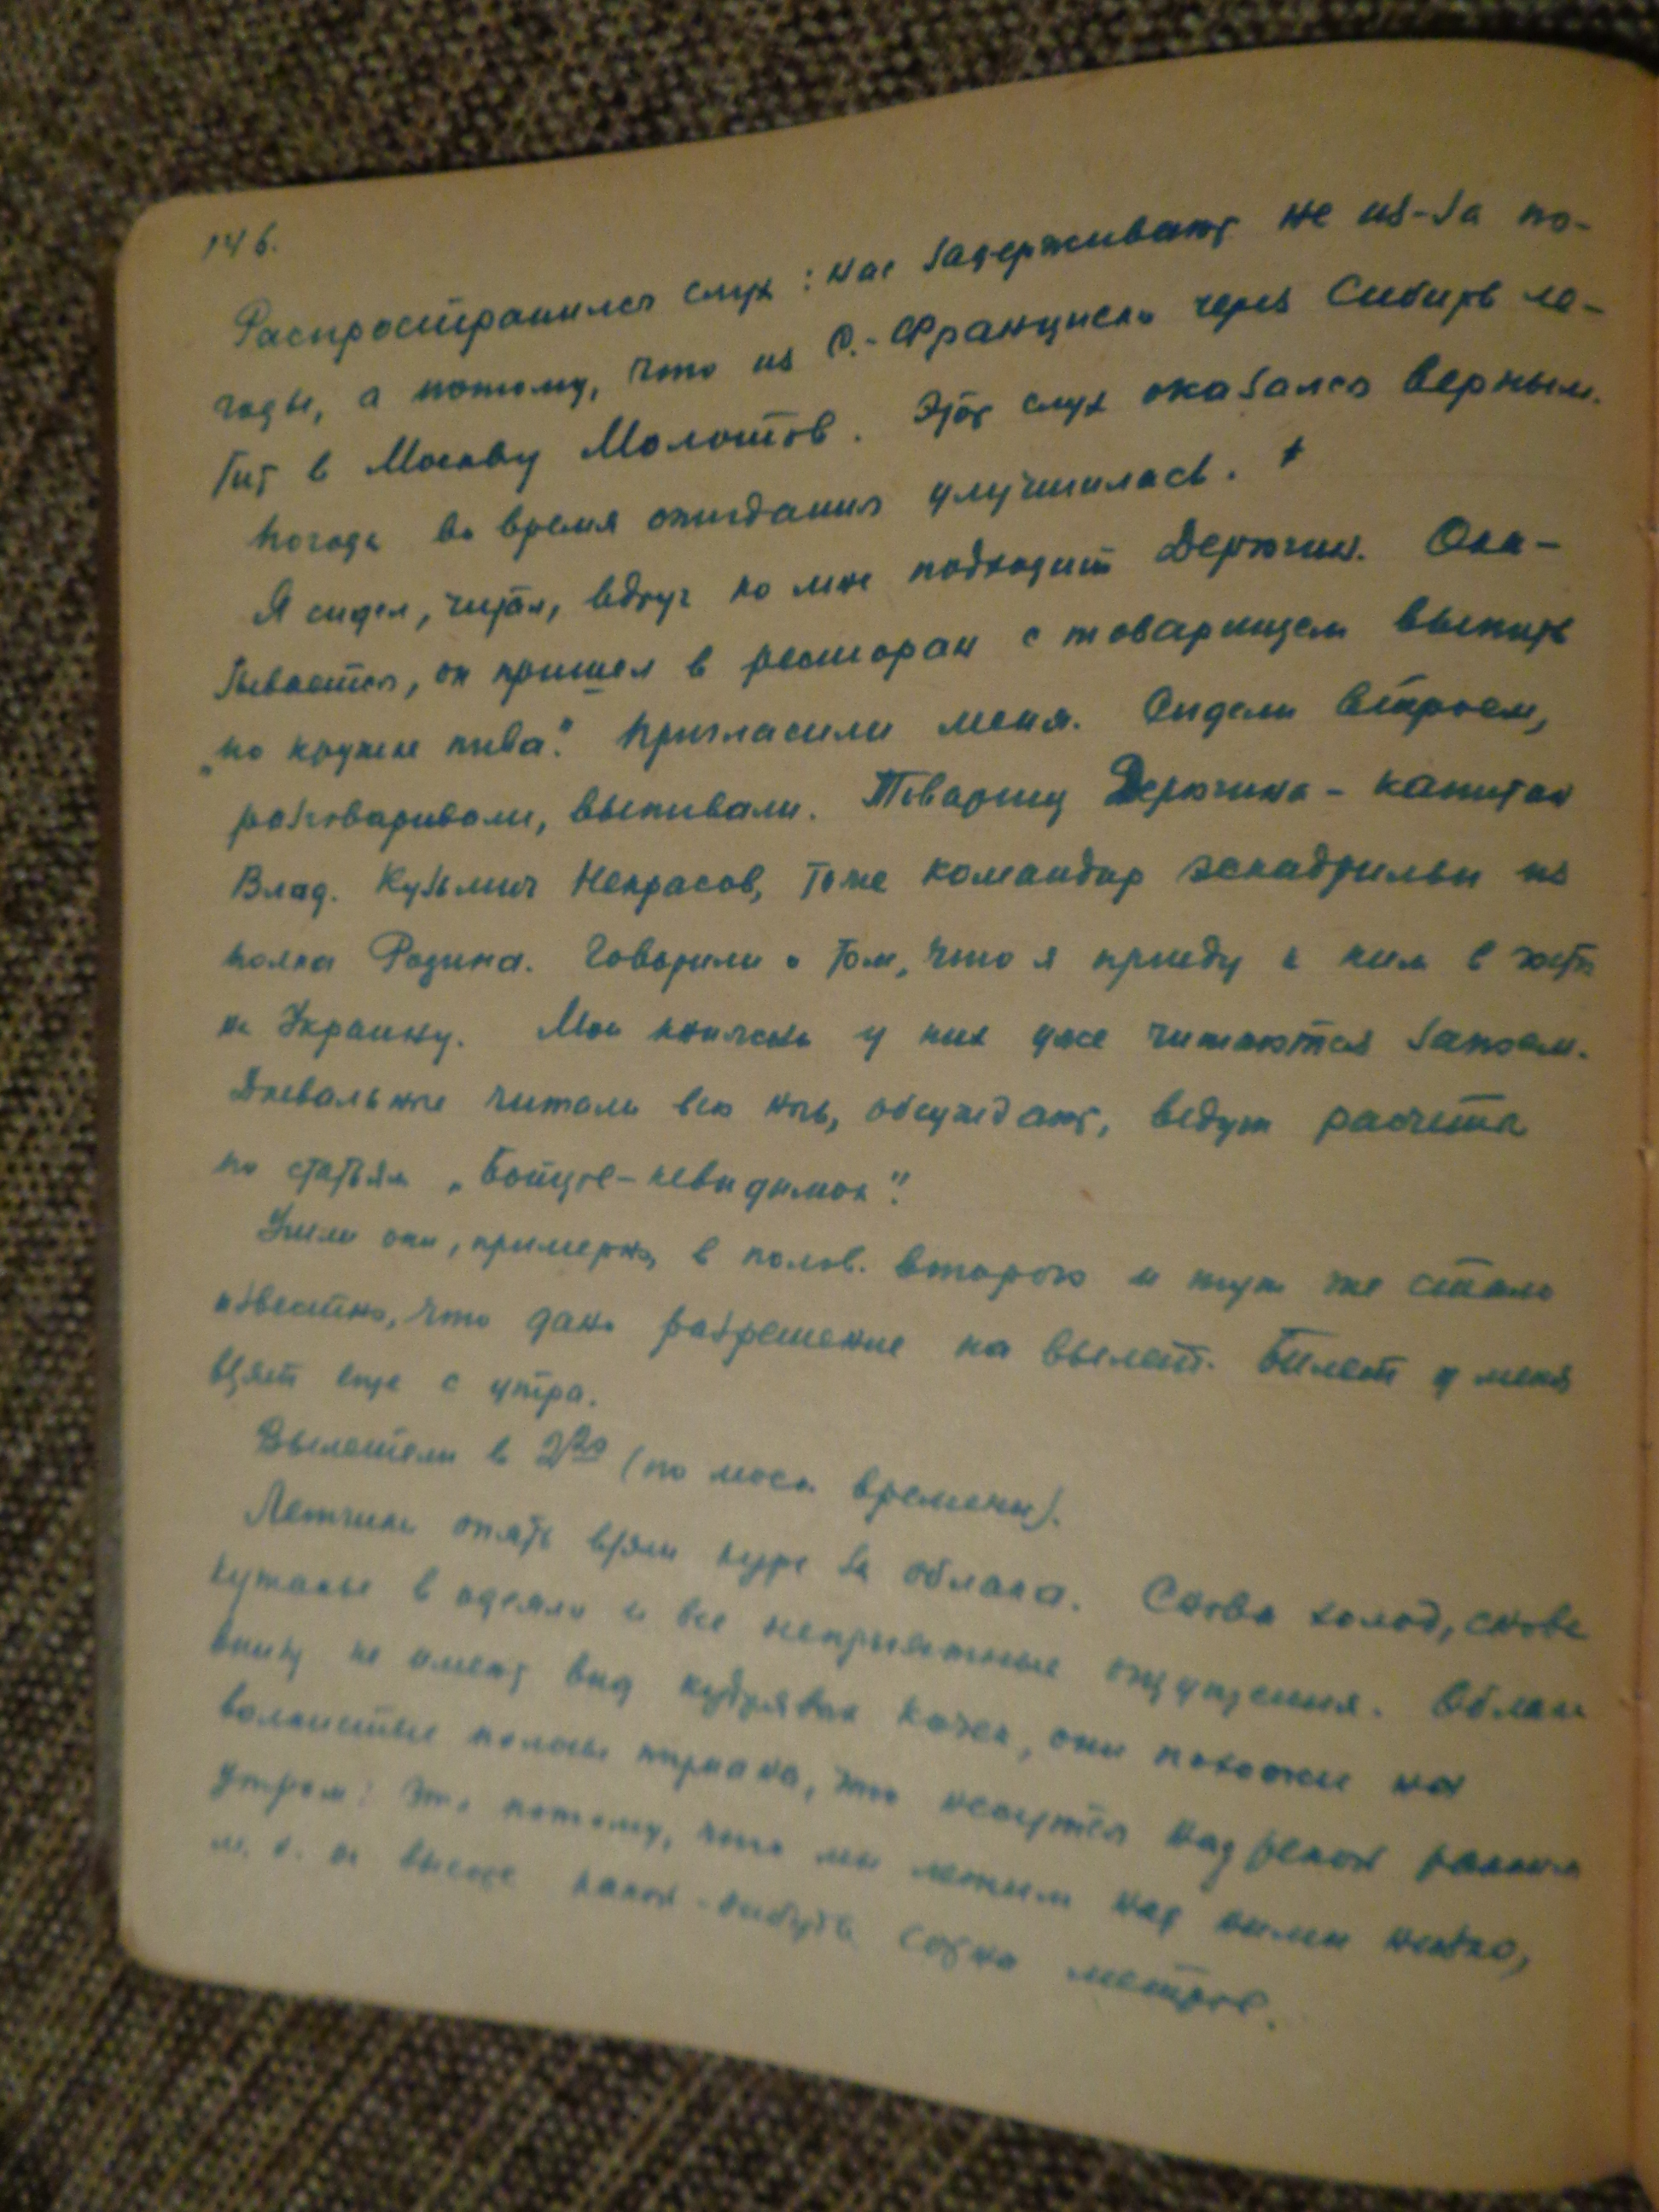 146.
Распространился слух: нас задерживают не из-за по-
годы, а потому, что из С.-Франциско через Сибирь ле-
тит в Москву Молотов. Этот слух оказался верным.
Погода во время ожидания улучшилась.
Я сидел, читал, вдруг ко мне подходит Дерюгин. Ока-
зывается, он пришел в ресторан с товарищем выпить
„по кружке пива“. Пригласили меня. Сидели втроем,
разговаривали, выпивали. Товарищ Дерюгина - капитан
Влад. Кузьмич Некрасов, тоже командир эскадрильи из
полка Родина. Говорили о том, что я приеду к ним в
на Украину. Мои книжки у них уже читаются запоем.
Дневальные читали всю ночь, обсуждают, ведут расчеты
по статьям „Бойцов-невидимок“.
Ушли они, примерно, в полов. второго и тут же стало
известно, что дано разрешение на вылет. Билет у меня
взят еще с утра.
Вылетели в 2²⁰ (по моск. времени).
Летчики опять взяли курс за облака. Снова холод, снова
кутанье в одеяло и все неприятные ощущения. Облака
внизу не имеют вид кудрявых кочек, они похожи на
волнистые полосы тумана, что несутся над рекой ранним
утром: Это потому, что мы летим над ними низко,
м. б. не выше какой-нибудь сотни метров.